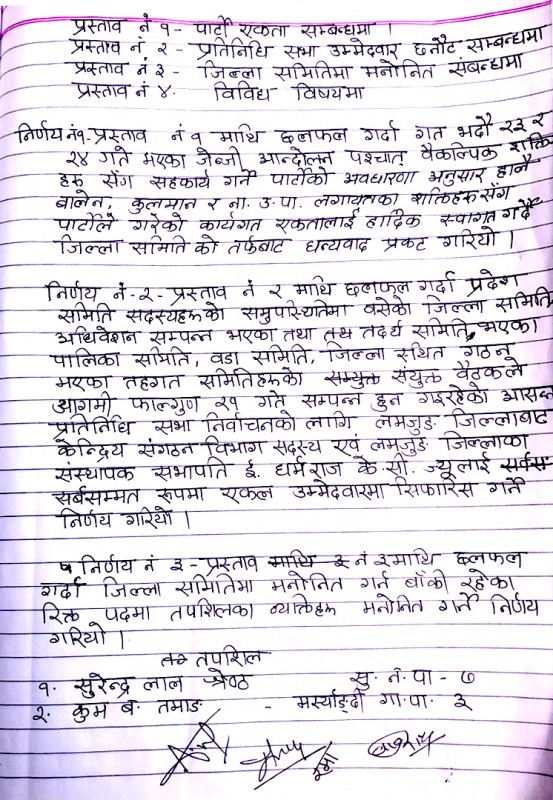 प्रस्ताव नं १- पार्टी एकता सम्बन्धमा ।
प्रस्ताव नं २ - प्रतिनिधि सभा उम्मेदवार छनौट सम्बन्धमा
प्रस्ताव नं ३ - जिल्ला समितिमा मनोनित संबन्धमा
प्रस्ताव नं ४. विविध विषयमा
निर्णय नं१- प्रस्ताव नं १ माथि छलफल गर्दा गत भदौ २३ र
२४ गते भएका जेन्जी आन्दोलन पश्चात् वैकल्पिक शक्ति
हरु सँग सहकार्य गर्ने पार्टीको अवधारणा अनुसार हाल
बालेन, कुलमान र ना. उ. पा. लगायतका शक्तिहरु सँग
पार्टीले गरेको कार्यगत एकतालाई हार्दिक स्वागत गर्दै
जिल्ला समिति को तर्फबाट धन्यवाद प्रकट गरियो ।
निर्णय नं - २ - प्रस्ताव नं २ माथि छलफल गर्दा प्रदेश
समिति सदस्यहरुको समुपस्थितिमा वसेको जिल्ला समिति
अधिवेशन सम्पन्न भएका तथा तथ तदर्थ समिति भएका
पालिका समिति, वडा समिति, जिल्ला स्थित गठन
भएका तहगत समितिहरुको सम्युक्त संयुक्त वैठकले
आगमी फाल्गुण २१ गते सम्पन्न हुन गइरहेको आसन्न
प्रतिनिधि सभा निर्वाचनको लागि लमजुङ जिल्लाबाट
केन्द्रिय संगठन विभाग सदस्य एवं लमजुङ जिल्लाका
संस्थापक सभापति ई. धर्मराज के.सी. ज्यूलाई सर्वस
सर्बसम्मत रुपमा एकल उम्मेदवारमा सिफारिस गर्ने
निर्णय गरियो ।
निर्णय नं ३ - प्रस्ताव माथि ३ नं ३ माथि छलफल
गर्दा जिल्ला समितिमा मनोनित गर्न बाँकी रहेका
रिक्त पदमा तपशिलका व्याक्तिहरु मनोनित गर्ने निर्णय
गरियो ।
तपशिल
१. सुरेन्द्र लाल श्रेष्ठ सु. न. पा - ७
२. कुम ब. तमाङ - मर्स्याङ्दी गा. पा. ३